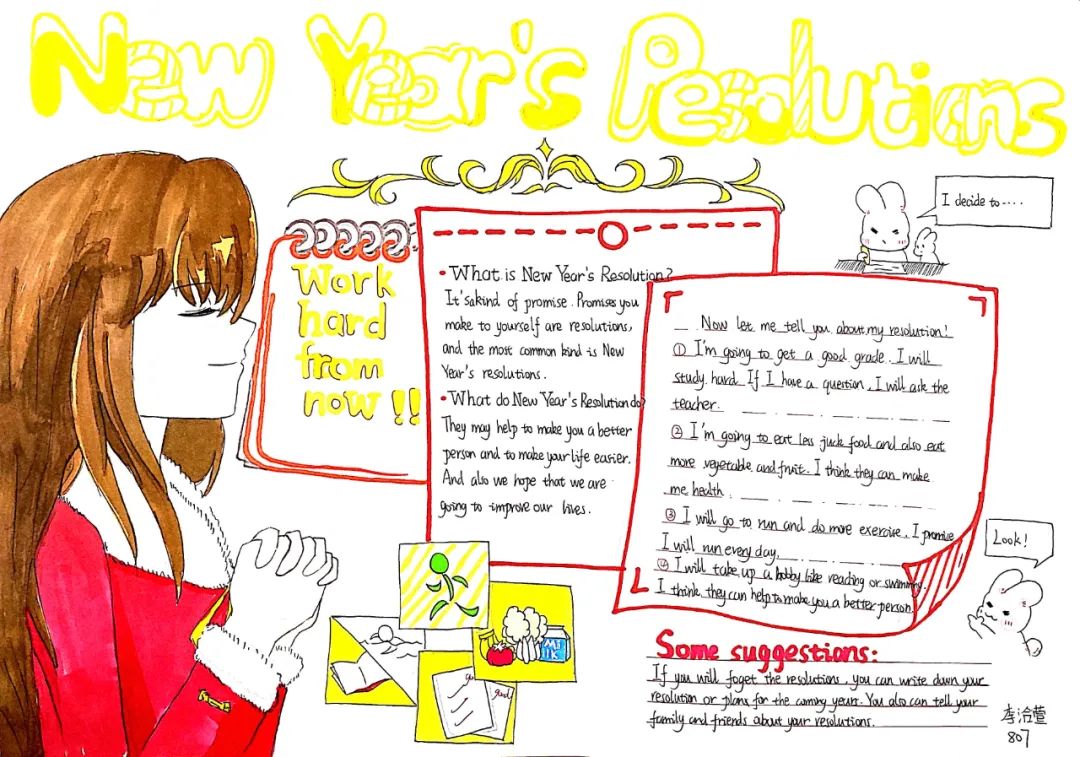 New Year's Resolutions
I decide to....
Work
hard
from
now!!
•What is New Year's Resolution?
It'sakind of promise. Promises you
make to yourself are resolutions,
and the most common kind is New
Year's resolutions.
•What do New Year's Resolution do?
They may help to make you a better
person and to make your life easier.
And also we hope that we are
going to improve our lives.
Now let me tell you about my resolution!
① I'm going to get a good grade. I will
study hard. If I have a question, I will ask the
teacher.
② I'm going to eat less juck food and also eat
more vegetable and fruit. I think they can make
me health.
③ I will go to run and do more exercise. I promise
I will run every day.
④ I will take up a hobby like reading or swimming.
I think they can help to make you a better person.
Look!
MI
IK
good
Some suggestions:
If you will foget the resolutions, you can write down your
resolution or plans for the coming years. You also can tell your
family and friends about your resolutions.
807